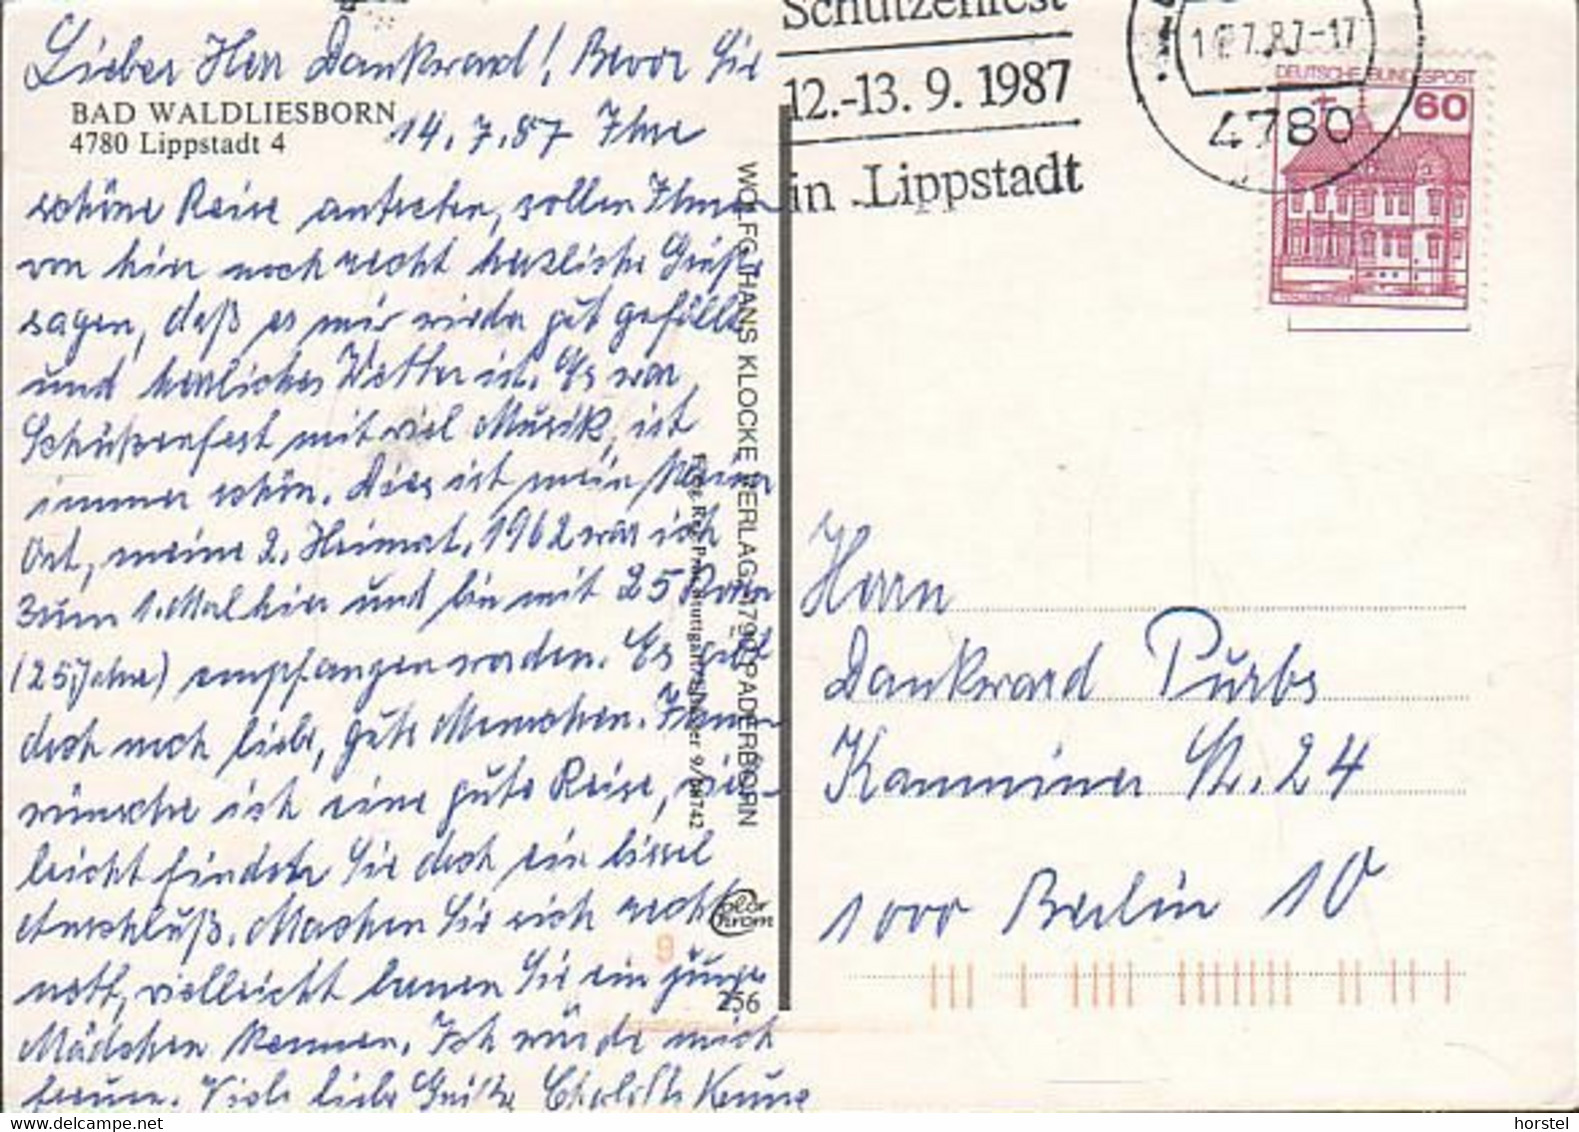 Lieber Herr Dankward! Bevor Sie
BAD WALDLIESBORN
4780 Lippstadt 4
14.7.87 Ihre
schöne Reise antreten, sollen Ihnen
von hier noch recht herzliche Grüße
sagen, daß es mir wieder gut gefällt
und herrliches Wetter ist. Es war
Schützenfest mit viel Musik, ist
immer schön. Dies ist mein kleiner
Ort, meine 2. Heimat. 1962 war ich
zum 1. Mal hier und bin mit 25 Rosen
(25 Jahre) empfangen worden. Es gibt
doch noch liebe, gute Menschen. Ihnen
wünsche ich eine gute Reise, viel-
leicht finden Sie doch ein bissel
Anschluß. Machen Sie sich recht
nett, vielleicht lernen Sie ein junges
Mädchen kennen. Ich würde mich
freuen. Viele liebe Grüße
WOLFGANG HANS KLOCKE VERLAG 4790 PADERBORN
256
Schützenfest
12.-13. 9. 1987
in Lippstadt
4780
DEUTSCHE BUNDESPOST
60
Herrn
Dankward Purbs
Kamminer Str. 24
1000 Berlin 10
9
horstel
www.delcampe.net